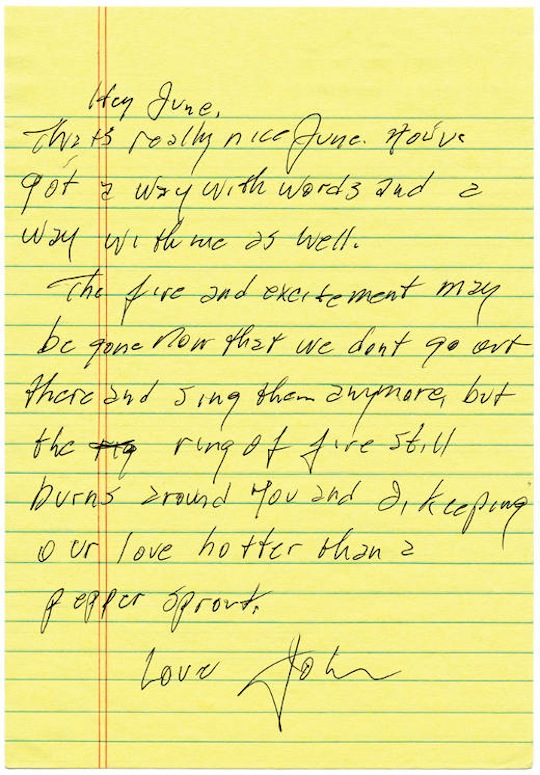 Hey June,
That's really nice June. You've
got a way with words and a
way with me as well.
The fire and excitement may
be gone now that we dont go out
there and sing them anymore, but
the ring of fire still
burns around you and I, keeping
our love hotter than a
pepper sprout.
Love John